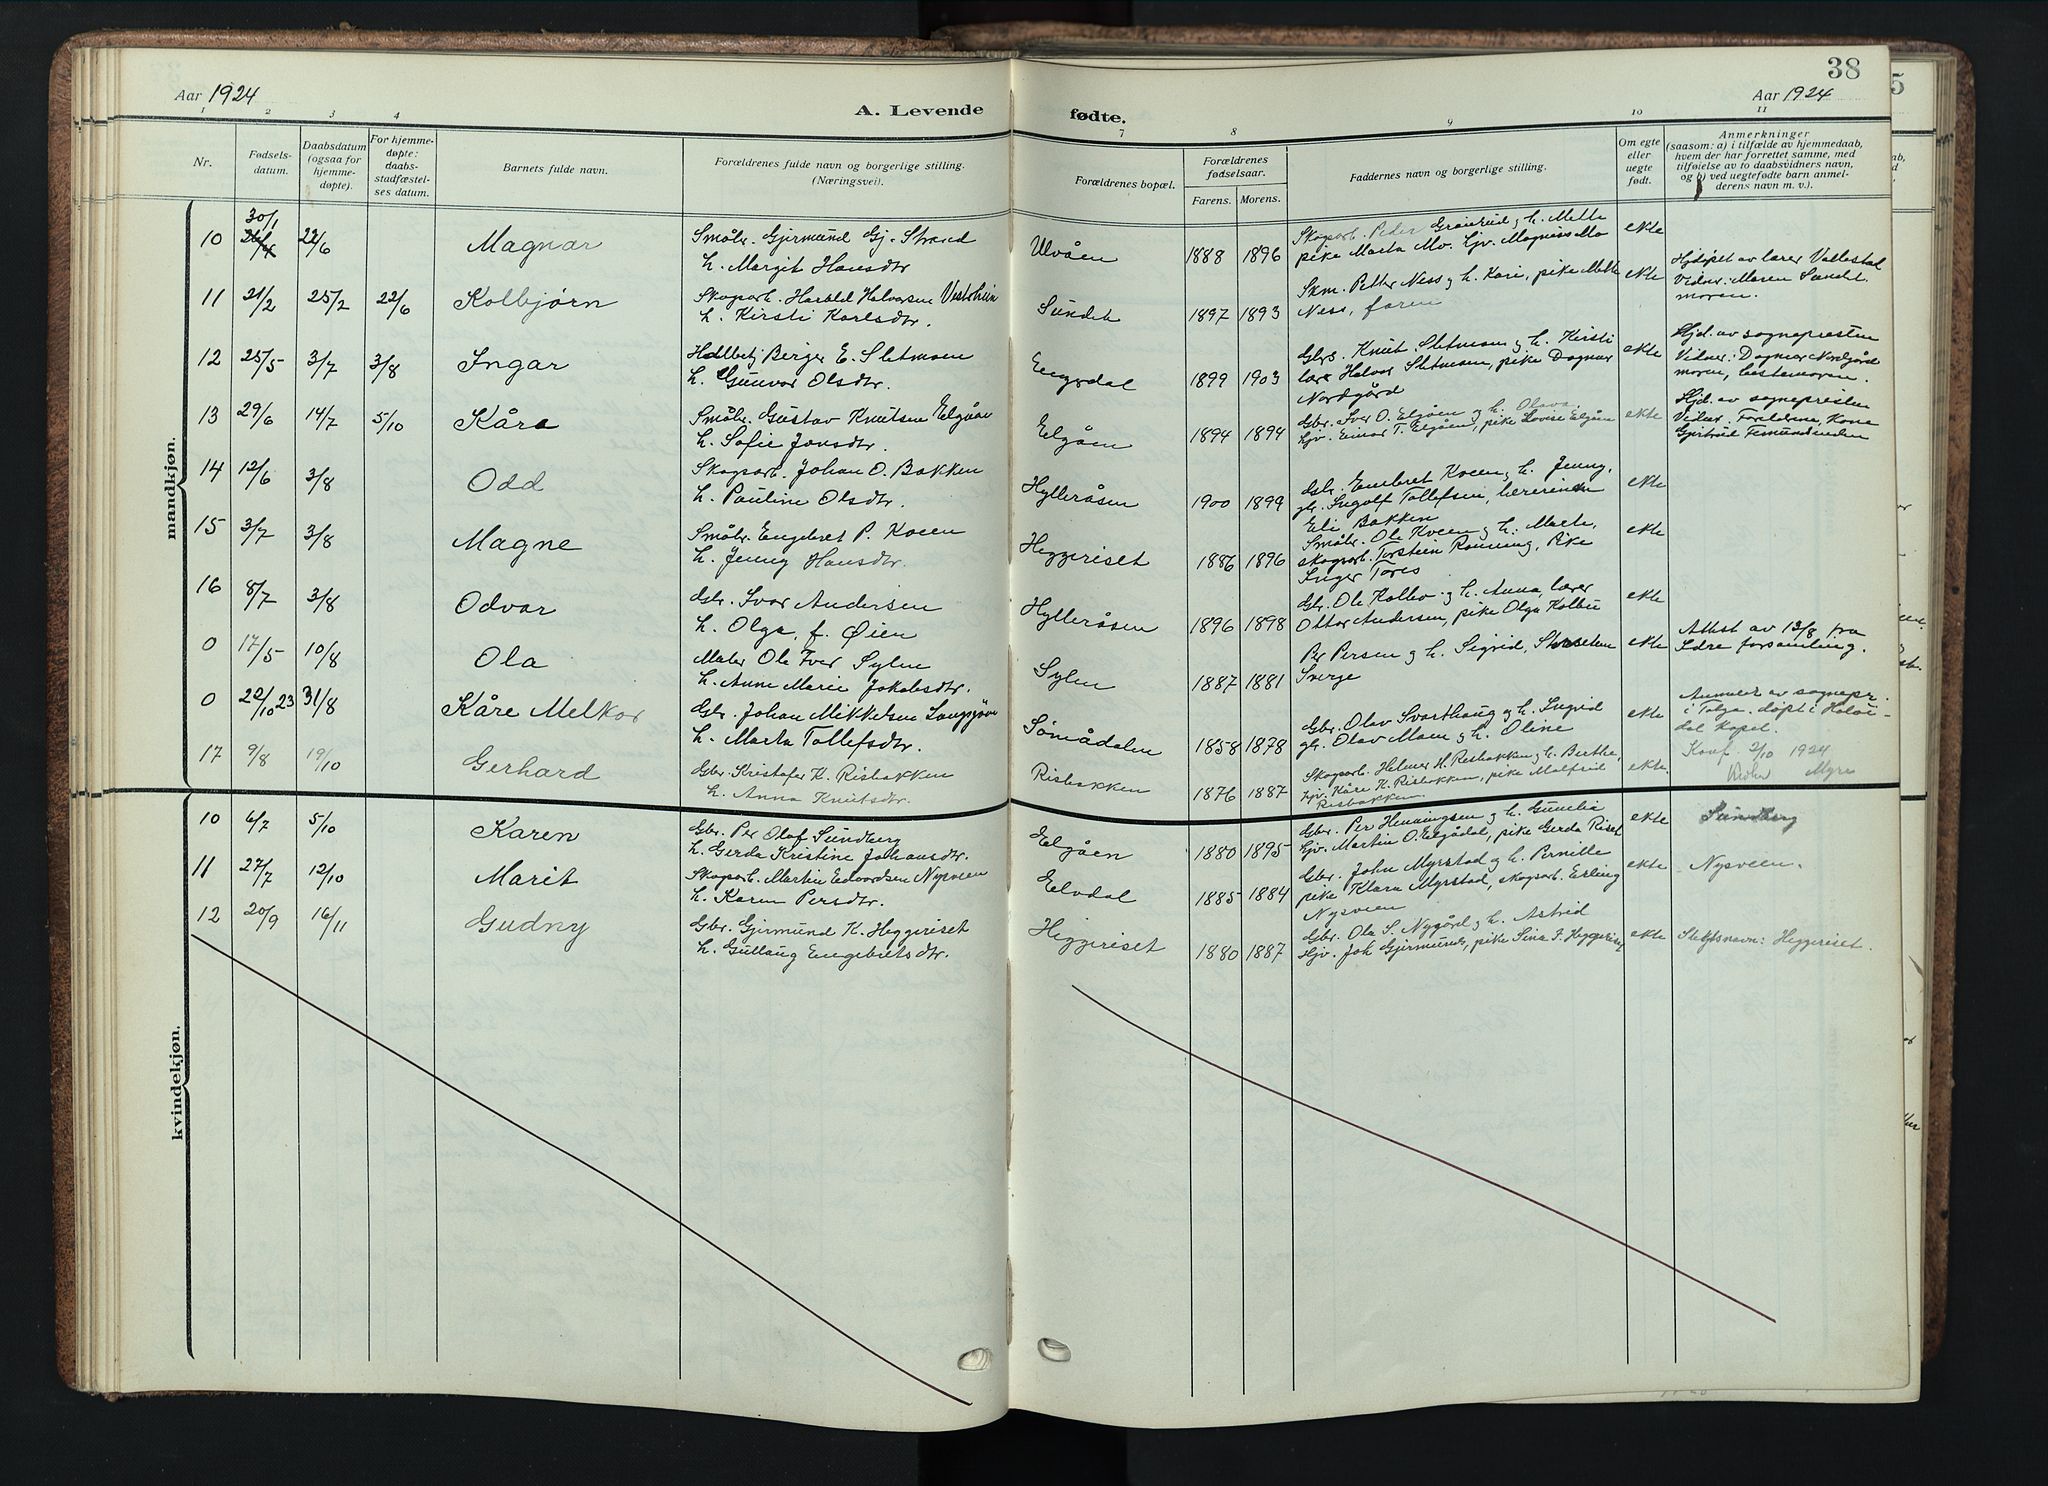 38
Aar 1924
A. Levende fødte.
Aar 1924
1 2 3 4 7 8 9 10 11
Nr.
Fødselsdatum.
Daabsdatum (ogsaa for hjemmedøpte).
For hjemmedøpte: daabsstadfæstelses datum.
Barnets fulde navn.
Forældrenes fulde navn og borgerlige stilling. (Næringsvei).
Forældrenes bopæl.
Forældrenes fødselsaar.
Farens. Morens.
Faddernes navn og borgerlige stilling.
Om egte eller uegte født.
Anmerkninger
(saasom: a) i tilfælde av hjemmedaab,
hvem der har forrettet samme, med
tilføielse av to daabsvidners navn,
og b) ved uegtefødte barn anmelderens navn m. v.).
mandkjøn.
10 30/1 22/6 Magnar
Småbr. Gjermund Gj. Strand
h. Margit Hansdtr
Ulvåen 1888 1896
Skogarb. Peder Graierud og h. Mette
pike Marta Mo. Ljv. Magnus Mo
ekte
11 21/2 25/2 22/6 Kolbjørn
Skogarb. Harald Halvorsen Vestvheim
h. Kirsti Karlsdtr.
Sundet 1897 1893
Skm. Petter Ness og h. Kari, pike Mette
Ness, faren
ekte
Hjdøpt av lærer Vallestad
Vidner: Maren Sundet
moren.
12 25/5 3/7 3/8 Ingar
Birger E. Sletmoen
h. Gunvor Olsdtr.
Engerdal 1899 1903
Gbr. Knut Sletmoen og h. Kirsti
lærer Halvor Sletmoen, pike Dagmar
Nordgård
ekte
Hjd. av sognepresten
Vidner: Dagmar Nordgård
moren, bestemoren.
13 29/6 14/7 5/10 Kåre
Småbr. Gustav Knutsen Elgåen
h. Sofie Jonsdtr.
Elgåen 1894 1894
Gbr. Iver O. Elgåen og h. Olava
Ljv. Einar T. Elgåen, pike Lovise Elgåen
ekte
Hjd. av sognepresten
Vidner: Foreldrene, Kone
Femundsenden
14 12/6 3/8 Odd
Skogarb. Johan O. Bakken
h. Pauline Olsdtr.
Hylleråsen 1900 1899
Gbr. Embret Kveen og h. Jenny,
gbr. Ingolf Tollefsen, lærerinden
Eli Bakken
ekte
15 3/7 3/8 Magne
Småbr. Engebret P. Kveen
h. Jenny Hansdtr.
Heggeriset 1886 1896
Småbr. Ole Kveen og h. Marte,
skogarb. Torstein Rønning, Pike
Inger Tores
ekte
16 8/7 3/8 Odvar
Gbr. Ivar Andersen
h. Olga, f. Øien
Hylleråsen 1896 1898
Gbr. Ole Kolbu og h. Anna, lærer
Ottar Andersen, pike Olga Kolbu
ekte
0 17/5 10/8 Ola
Maler Ole Iver Sylen
h. Anne Marie Jakobsdtr.
Sylen 1887 1881
Per Persen og h. Sigrid, Storsetern
Sverge
ekte
Attest av 12/8 fra
Idre forsamling.
0 20/10 23 31/8 Kåre Melkor
Gbr. Johan Mikkelsen Langsjøen
h. Marta Tollefsdtr.
Sømådalen 1858 1878
Gbr. Olav Svarthaug og h. Ingrid
gbr. Olav Moen og h. Oline
ekte
Anmeldt av sognepr.
i Tolga, døpt i Holøidal kapel.
17 9/8 19/10 Gerhard
Gbr. Kristofer K. Risbakken
h. Anna Knutsdtr.
Risbakken 1876 1887
Skogarb. Helmer H. Risbakken og h. Berthe,
Ljv. Kåre K. Risbakken, pike Malfrid
Risbakken
ekte.
Konf. 2/10 1924
Myre
kvindekjøn.
10 6/7 5/10 Karen
Gbr. Per Olof Sundberg
h. Gerda Kristine Johansdtr.
Elgåen 1880 1895
Gbr. Per Henningsen og h. Gunelia
Ljv. Martin O. Elgådal, pike Gerda Riset
ekte
Sundberg
11 27/7 12/10 Marit
Skogarb. Martin Edvardsen Nysveen
h. Karen Persdtr.
Elvdal 1885 1884
Gbr. John Myrstad og h. Pernille
pike Klara Myrstad, skogarb. Erling
Nysveen
ekte
Nysveen.
12 20/9 16/11 Gudny
Gbr. Gjermund K. Heggeriset
h. Gullaug Engebretsdtr.
Heggeriset 1880 1887
Gbr. Ole S. Nygård og h. Astrid
Ljv. Joh Gjermunds, pike Sina F. Heggeriset
ekte
Slegtsnavn: Heggeriset.